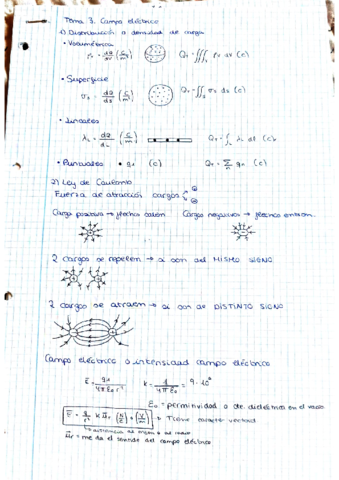 Tema 3. Campo eléctrico
1) Distribución o densidad de carga
• Volumétrica
ρv = dQ/dv (C/m³) QT = ∭v ρv dv (C)
• Superficie
σs = dQ/ds (C/m²) QT = ∬s σs ds (C)
• Lineales
λL = dQ/dL (C/m) QT = ∫L λL dl (C)
• Puntuales • q1 (C) QT = Σn qn (C)
2) Ley de Coulomb
Fuerza de atracción cargas + -
Carga positiva → flechas salen Cargas negativas → flechas entran
2 cargas se repelen → si son del MISMO SIGNO
2 cargas se atraen → si son de DISTINTO SIGNO
Campo eléctrico o intensidad campo eléctrico
k = 1/4πε0 = 9·10⁹
ε0 = permitividad o cte. dieléctrica en el vacío
→ Tiene carácter vectorial
me da el sentido del campo eléctrico